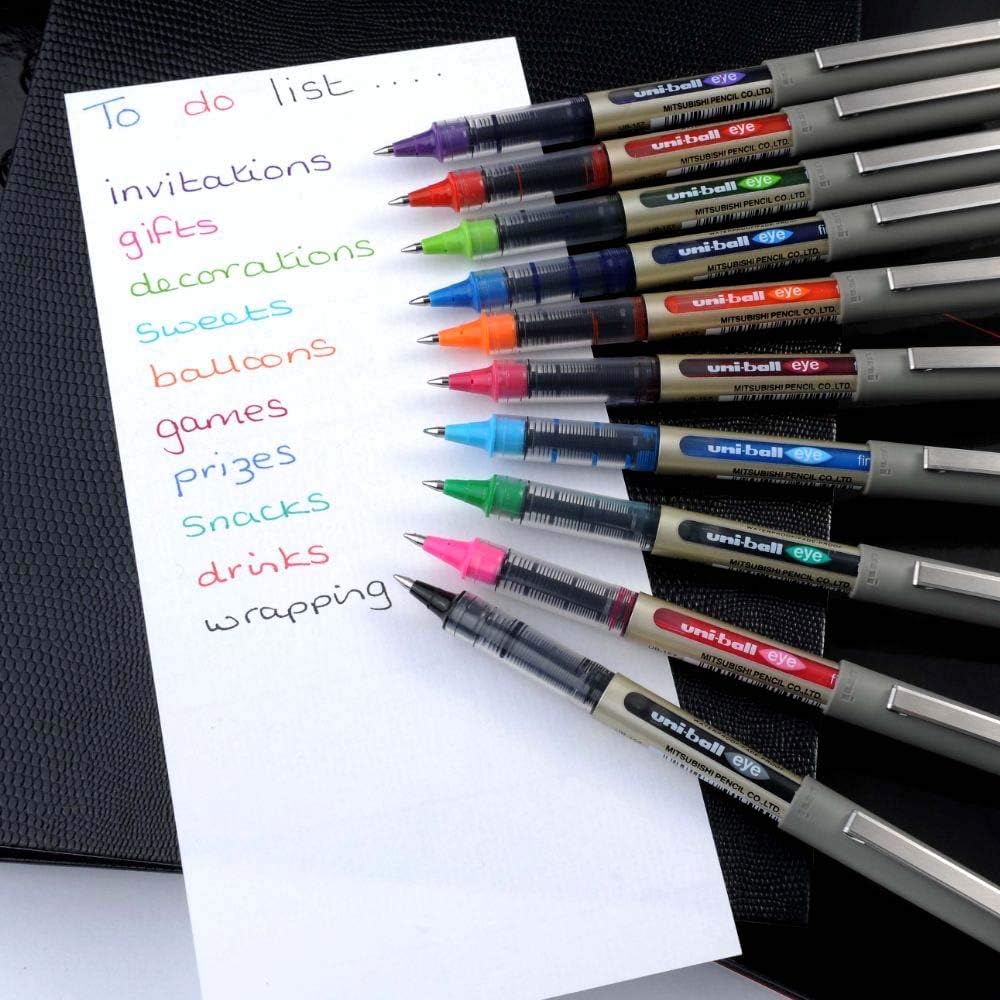 To do list ....
invitations
gifts
decorations
sweets
balloons
games
prizes
snacks
drinks
wrapping
uni-ball eye
MITSUBISHI PENCIL CO.,LTD.
uni-ball eye
MITSUBISHI PENCIL CO.,LTD.
uni-ball eye
MITSUBISHI PENCIL CO.,LTD.
uni-ball eye fi
MITSUBISHI PENCIL CO.,LTD.
uni-ball eye
MITSUBISHI PENCIL CO.,LTD.
uni-ball eye
MITSUBISHI PENCIL CO.,LTD.
uni-ball eye fin
MITSUBISHI PENCIL CO.,LTD.
uni-ball eye
MITSUBISHI PENCIL CO.,LTD.
uni-ball eye
MITSUBISHI PENCIL CO.,LTD.
uni-ball eye
MITSUBISHI PENCIL CO.,LTD.